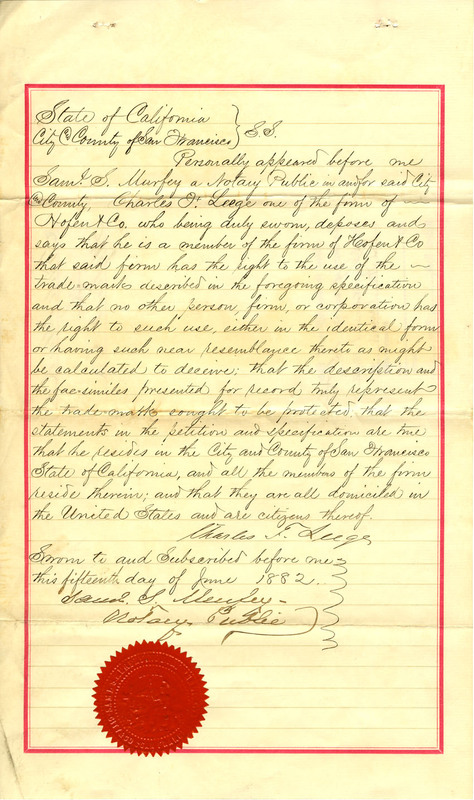 State of California
City & County of San Francisco } S.S.
Personally appeared before me
Saml. S. Murfey a Notary Public in and for said City
& County, Charles F. Leege one of the firm of
Hofen & Co. who being duly sworn, deposes and
says that he is a member of the firm of Hofen & Co
that said firm has the right to the use of the
trade-mark described in the foregoing specification
and that no other person, firm, or corporation has
the right to such use, either in the identical form
or having such near resemblance thereto as might
be calculated to deceive; that the description and
the fac-similes presented for record truly represent
the trade-mark sought to be protected, that the
statements in the petition and specification are true
that he resides in the City and County of San Francisco
State of California, and all the members of the firm
reside therein; and that they are all domiciled in
the United States and are citizens thereof.
Charles F. Leege
Sworn to and Subscribed before me
this fifteenth day of June 1882.
Saml. S. Murfey
Notary Public